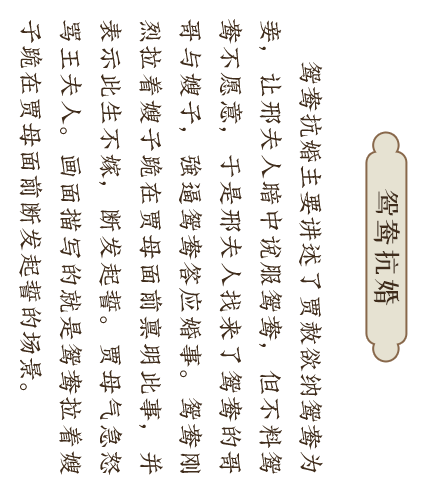 鸳鸯抗婚
鸳鸯抗婚主要讲述了贾赦欲纳鸳鸯为
妾，让邢夫人暗中说服鸳鸯，但不料鸳
鸯不愿意，于是邢夫人找来了鸳鸯的哥
哥与嫂子，強逼鸳鸯答应婚事。鸳鸯刚
烈拉着嫂子跪在贾母面前禀明此事，并
表示此生不嫁，断发起誓。贾母气急怒
骂王夫人。画面描写的就是鸳鸯拉着嫂
子跪在贾母面前断发起誓的场景。